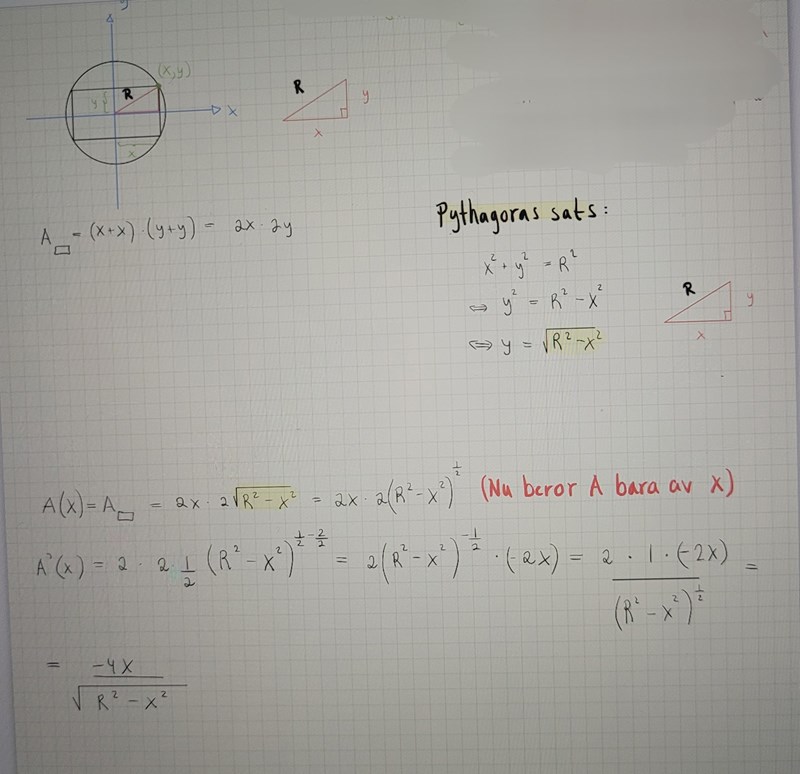 y
(x,y)
R
y
x
x
R
y
x
A▭ = (x+x)·(y+y) = 2x · 2y
Pythagoras sats:
x² + y² = R²
⇔ y² = R² - x²
⇔ y = √(R² - x²)
R
y
x
A(x) = A▭ = 2x · 2√(R² - x²) = 2x · 2(R² - x²)^(1/2) (Nu beror A bara av x)
A'(x) = 2 · 2 1/2 (R² - x²)^(1/2 - 2/2) = 2(R² - x²)^(-1/2) · (-2x) = 2 · 1 · (-2x) / (R² - x²)^(1/2) =
= -4x / √(R² - x²)